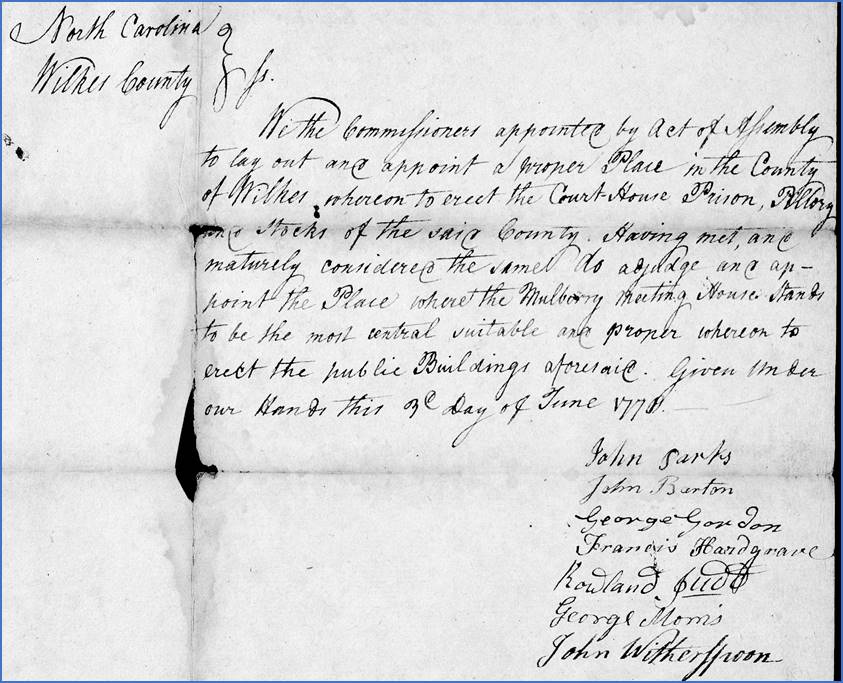 North Carolina
Wilkes County } ss.
We the Commissioners appointed by Act of Assembly
to lay out and appoint a proper Place in the County
of Wilkes, whereon to erect the Court House Prison, Pillory
and Stocks of the said County. Having met, and
maturely considered the same do adjudge and ap-
point the Place where the Mulberry meeting House Stands
to be the most central suitable and proper whereon to
erect the public Buildings aforesaid. Given Under
our Hands this 3d Day of June 1778.
John Parks
John Barton
George Gordon
Francis Hardgrave
Rowland Judd
George Morris
John Witherspoon